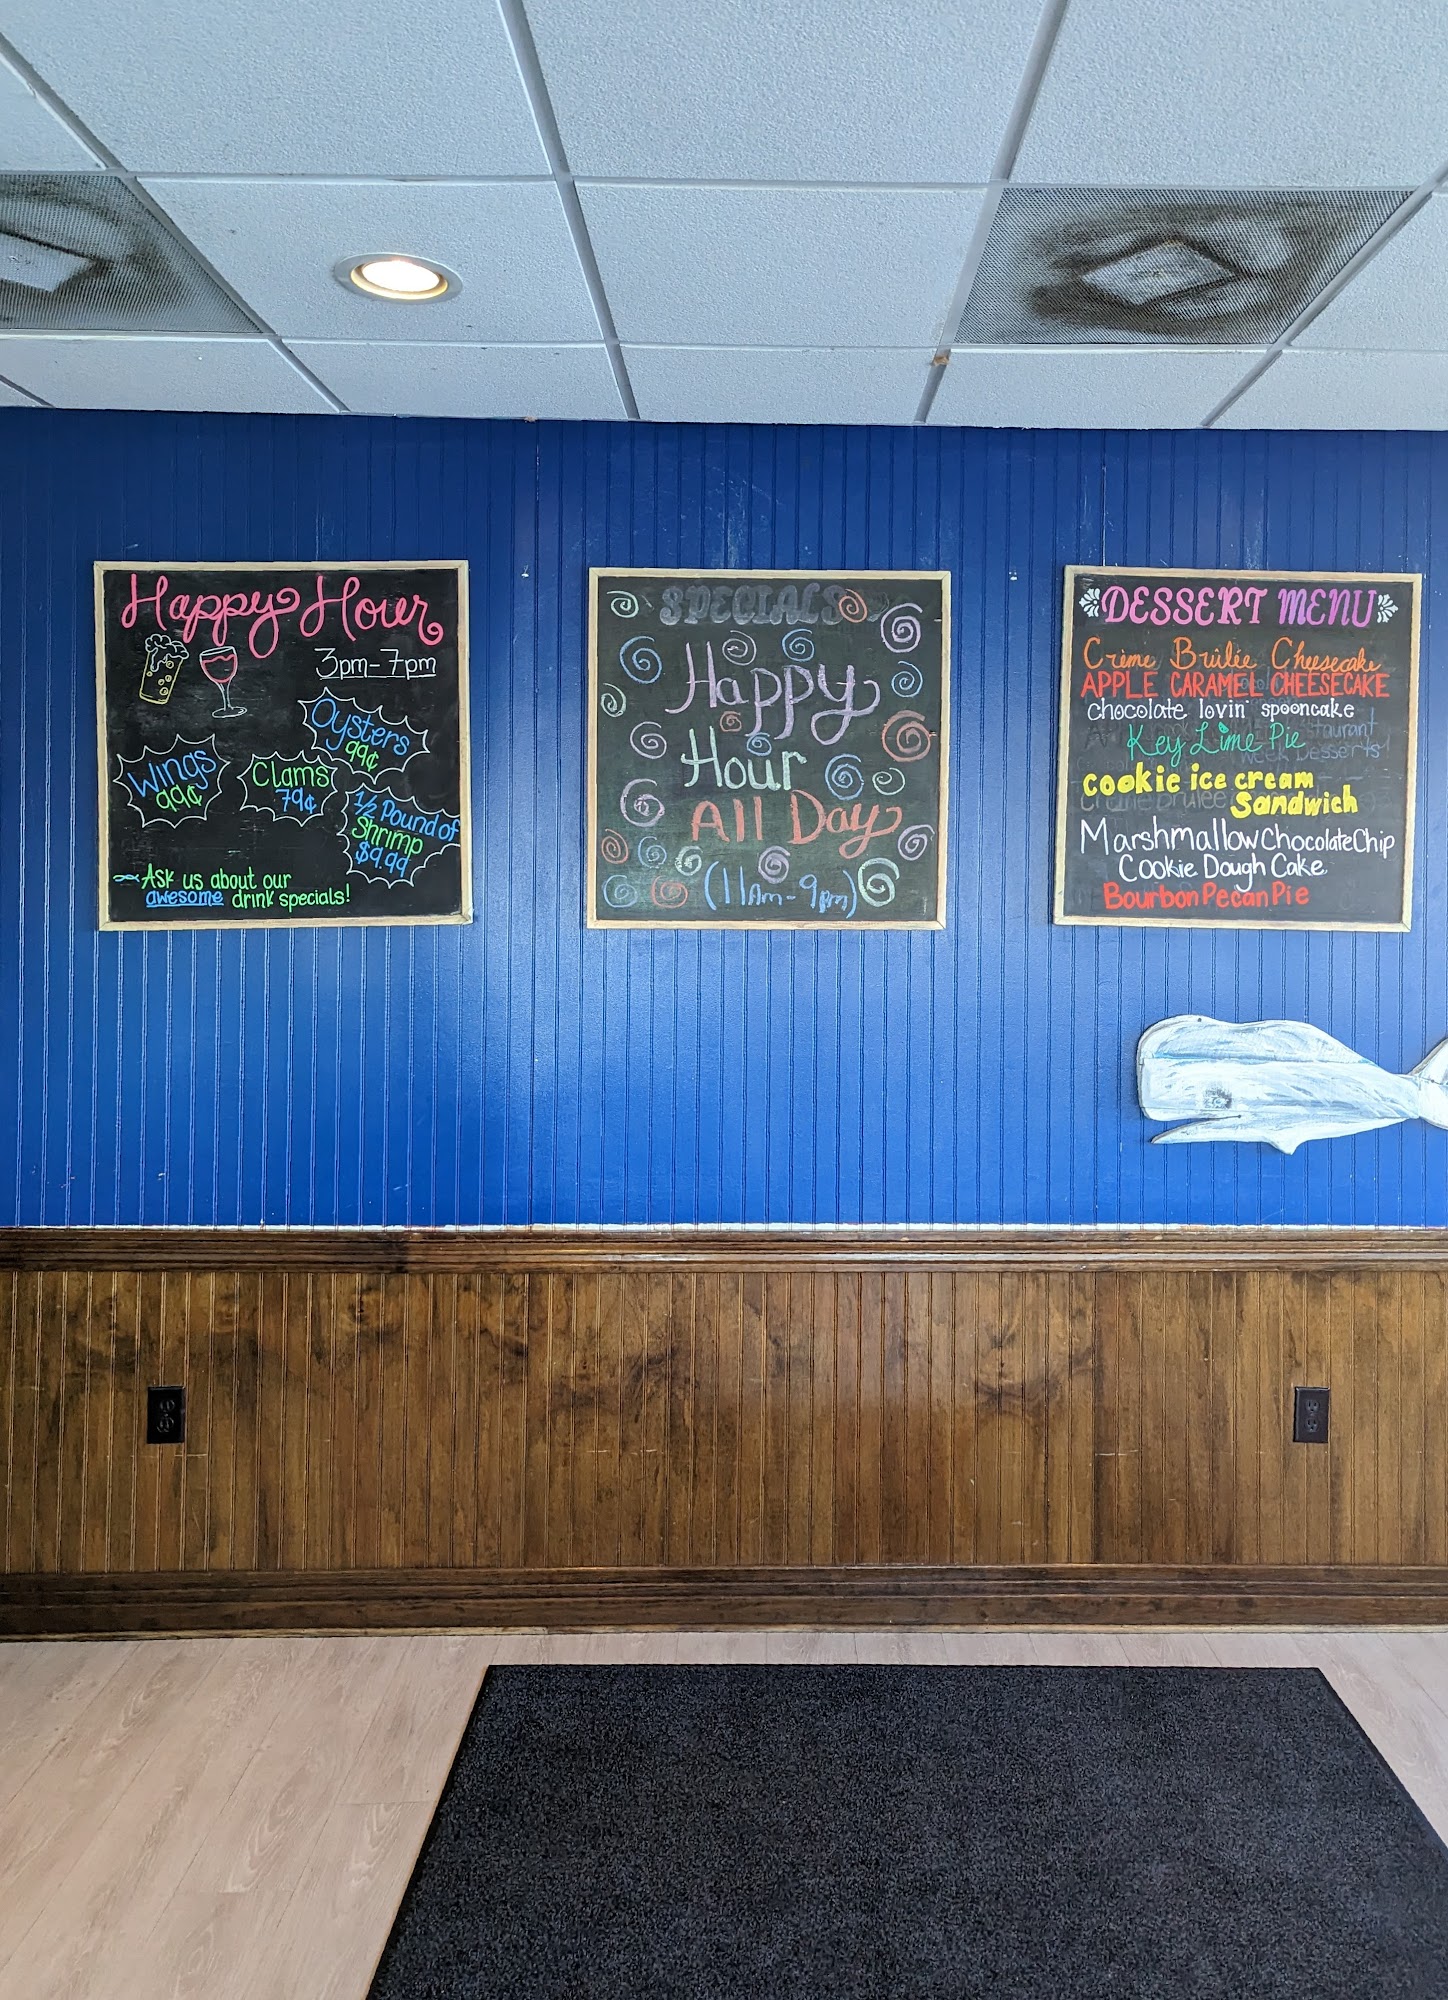 Happy Hour
3pm-7pm
Oysters
99¢
Wings
99¢
Clams
79¢
1/2 Pound of
Shrimp
$9.99
Ask us about our
awesome drink specials!
SPECIALS
Happy
Hour
All Day
(11am-9pm)
DESSERT MENU
Crème Brûlée Cheesecake
APPLE CARAMEL CHEESECAKE
chocolate lovin' spooncake
Key Lime Pie
cookie ice cream
Sandwich
Marshmallow Chocolate Chip
Cookie Dough Cake
Bourbon Pecan Pie